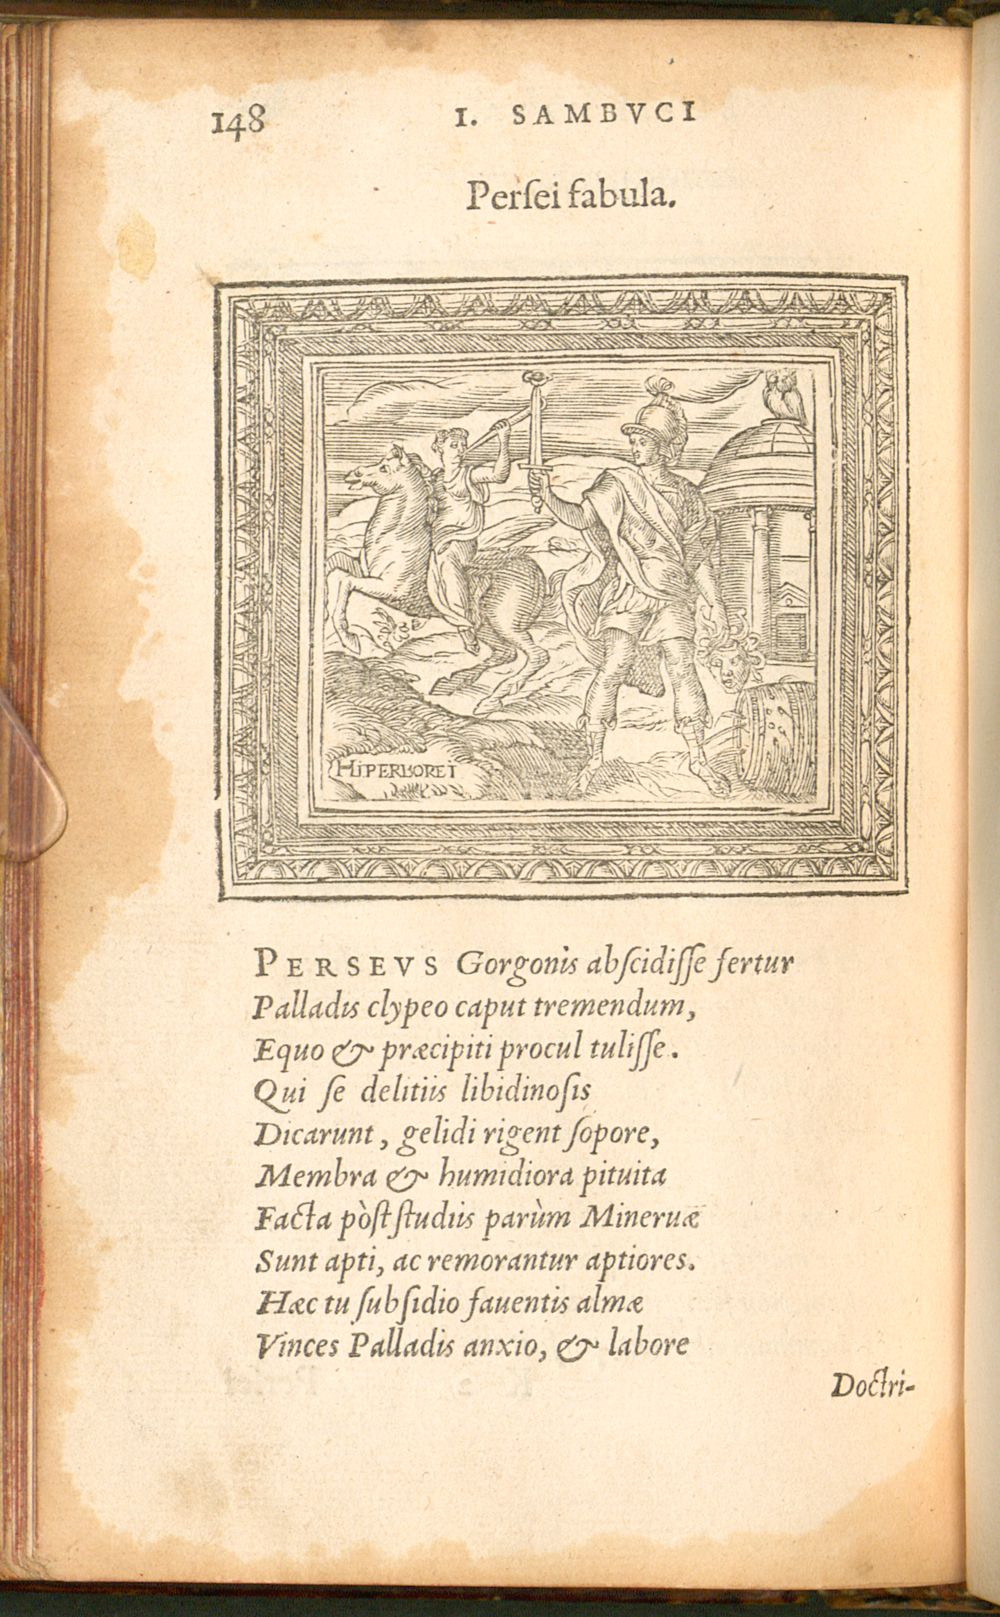 148 I. SAMBVCI
Perſei fabula.
HIPERBOREI
PERSEVS Gorgonis abſcidiſſe fertur
Palladis clypeo caput tremendum,
Equo & præcipiti procul tuliſſe.
Qui ſe delitiis libidinoſis
Dicarunt, gelidi rigent ſopore,
Membra & humidiora pituita
Facta pòſt ſtudiis parùm Mineruæ
Sunt apti, ac remorantur aptiores.
Hæc tu ſubſidio fauentis almæ
Vinces Palladis anxio, & labore
Doctri-